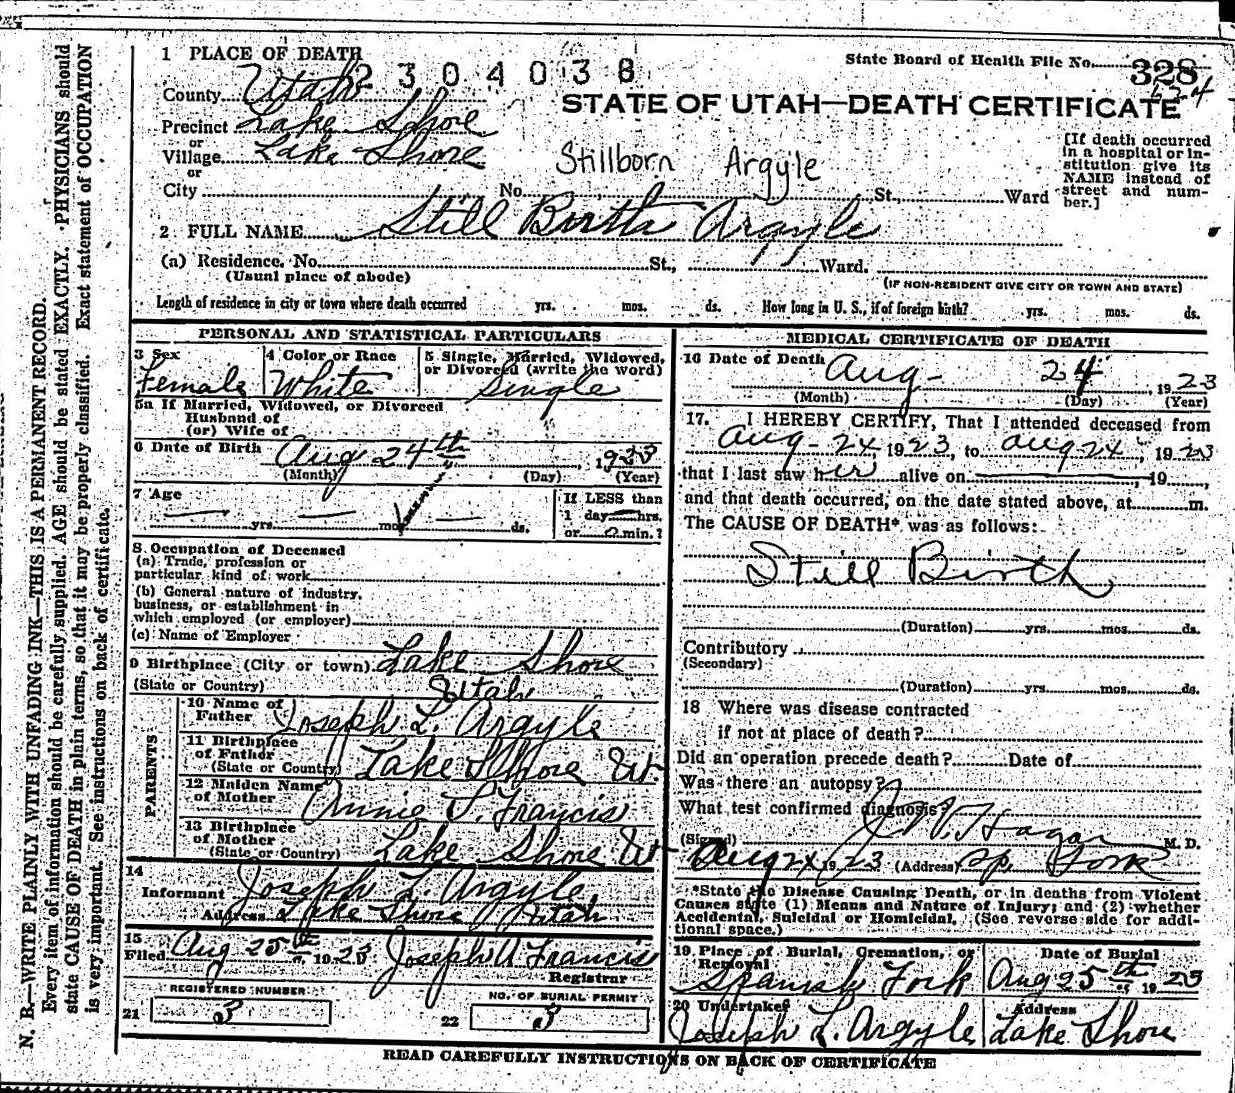 1 PLACE OF DEATH
2304038
State Board of Health File No. 328
County Utah
STATE OF UTAH—DEATH CERTIFICATE
Precinct Lake Shore
or
Village Lake Shore
or
Stillborn Argyle
[If death occurred in a hospital or in-
stitution give its
NAME instead of
street and num-
ber.]
City No. St., Ward
2 FULL NAME Still Birth Argyle
(a) Residence. No. St., Ward.
(Usual place of abode)
(IF NON-RESIDENT GIVE CITY OR TOWN AND STATE)
Length of residence in city or town where death occurred yrs. mos. ds. How long in U. S., if of foreign birth? yrs. mos. ds.
PERSONAL AND STATISTICAL PARTICULARS
3 Sex
Female
4 Color or Race
White
5 Single, Married, Widowed,
or Divorced (write the word)
Single
5a If Married, Widowed, or Divorced
Husband of
(or) Wife of
6 Date of Birth Aug 24th, 1923
(Month) (Day) (Year)
7 Age
yrs. mos. ds.
If LESS than
1 day — hrs.
or 0 min.?
8 Occupation of Deceased
(a) Trade, profession or
particular kind of work
(b) General nature of industry,
business, or establishment in
which employed (or employer)
(c) Name of Employer
9 Birthplace (City or town) Lake Shore
(State or Country) Utah
PARENTS
10 Name of
Father Joseph L. Argyle
11 Birthplace
of Father
(State or Country) Lake Shore Ut.
12 Maiden Name
of Mother Annie S. Francis
13 Birthplace
of Mother
(State or Country) Lake Shore Ut
14
Informant Joseph L. Argyle
Address Lake Shore Utah
15
Filed Aug 25th, 1923 Joseph A Francis
Registrar
REGISTERED NUMBER
21 3
NO. OF BURIAL PERMIT
22 3
MEDICAL CERTIFICATE OF DEATH
16 Date of Death Aug - 24, 1923
(Month) (Day) (Year)
17. I HEREBY CERTIFY, That I attended deceased from
Aug - 24 1923, to Aug 24, 1923
that I last saw her alive on , 19 ,
and that death occurred, on the date stated above, at m.
The CAUSE OF DEATH* was as follows:
Still Birth
(Duration) yrs. mos. ds.
Contributory
(Secondary)
(Duration) yrs. mos. ds.
18 Where was disease contracted
if not at place of death?
Did an operation precede death? Date of
Was there an autopsy?
What test confirmed diagnosis?
(Signed) J. W. Hagan M. D.
Aug 24 1923 (Address) Sp. Fork
*State the Disease Causing Death, or in deaths from Violent
Causes state (1) Means and Nature of Injury; and (2) whether
Accidental, Suicidal or Homicidal. (See reverse side for addi-
tional space.)
19 Place of Burial, Cremation, or
Removal
Spanish Fork
Date of Burial
Aug 25th 1923
20 Undertaker
Joseph L. Argyle
Address
Lake Shore
READ CAREFULLY INSTRUCTIONS ON BACK OF CERTIFICATE
N. B.—WRITE PLAINLY WITH UNFADING INK—THIS IS A PERMANENT RECORD.
Every item of information should be carefully supplied. AGE should be stated EXACTLY. PHYSICIANS should
state CAUSE OF DEATH in plain terms, so that it may be properly classified. Exact statement of OCCUPATION
is very important. See instructions on back of certificate.